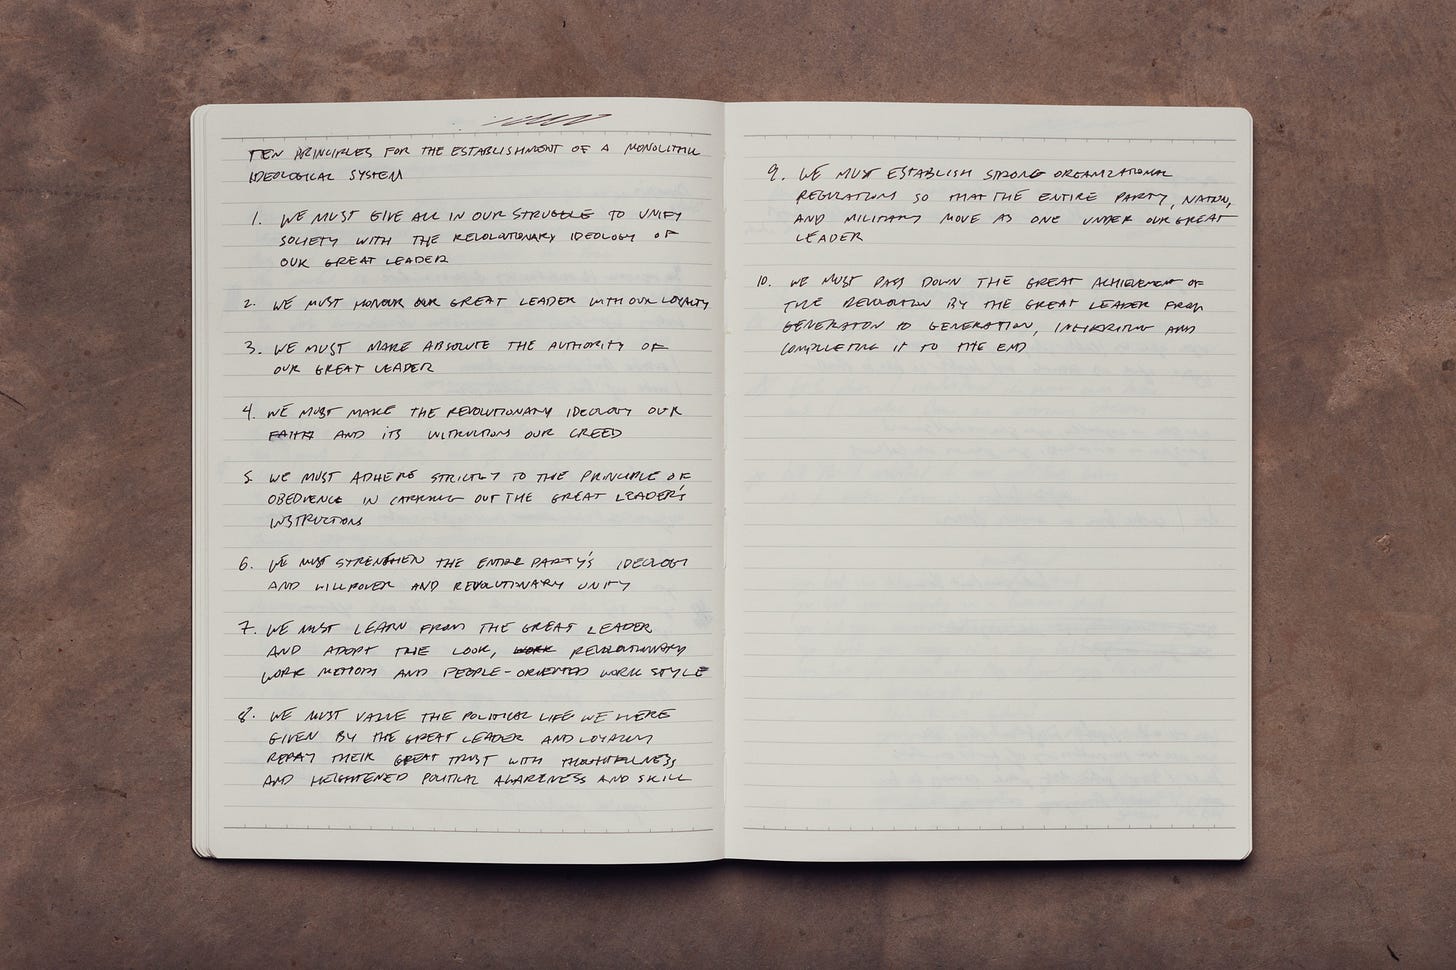 TEN PRINCIPLES FOR THE ESTABLISHMENT OF A MONOLITHIC
IDEOLOGICAL SYSTEM
1. WE MUST GIVE ALL IN OUR STRUGGLE TO UNIFY
SOCIETY WITH THE REVOLUTIONARY IDEOLOGY OF
OUR GREAT LEADER
2. WE MUST HONOUR OUR GREAT LEADER WITH OUR LOYALTY
3. WE MUST MAKE ABSOLUTE THE AUTHORITY OF
OUR GREAT LEADER
4. WE MUST MAKE THE REVOLUTIONARY IDEOLOGY OUR
FAITH AND ITS INSTRUCTIONS OUR CREED
5. WE MUST ADHERE STRICTLY TO THE PRINCIPLE OF
OBEDIENCE IN CARRYING OUT THE GREAT LEADER'S
INSTRUCTIONS
6. WE MUST STRENGTHEN THE ENTIRE PARTY'S IDEOLOGY
AND WILLPOWER AND REVOLUTIONARY UNITY
7. WE MUST LEARN FROM THE GREAT LEADER
AND ADOPT THE LOOK, WORK REVOLUTIONARY
WORK METHODS AND PEOPLE-ORIENTED WORK STYLE
8. WE MUST VALUE THE POLITICAL LIFE WE WERE
GIVEN BY THE GREAT LEADER AND LOYALLY
REPAY THEIR GREAT TRUST WITH THOUGHTFULNESS
AND HEIGHTENED POLITICAL AWARENESS AND SKILL
9. WE MUST ESTABLISH STRONG ORGANIZATIONAL
REGULATIONS SO THAT THE ENTIRE PARTY, NATION,
AND MILITARY MOVE AS ONE UNDER OUR GREAT
LEADER
10. WE MUST PASS DOWN THE GREAT ACHIEVEMENT OF
THE REVOLUTION BY THE GREAT LEADER FROM
GENERATION TO GENERATION, INHERITING AND
COMPLETING IT TO THE END